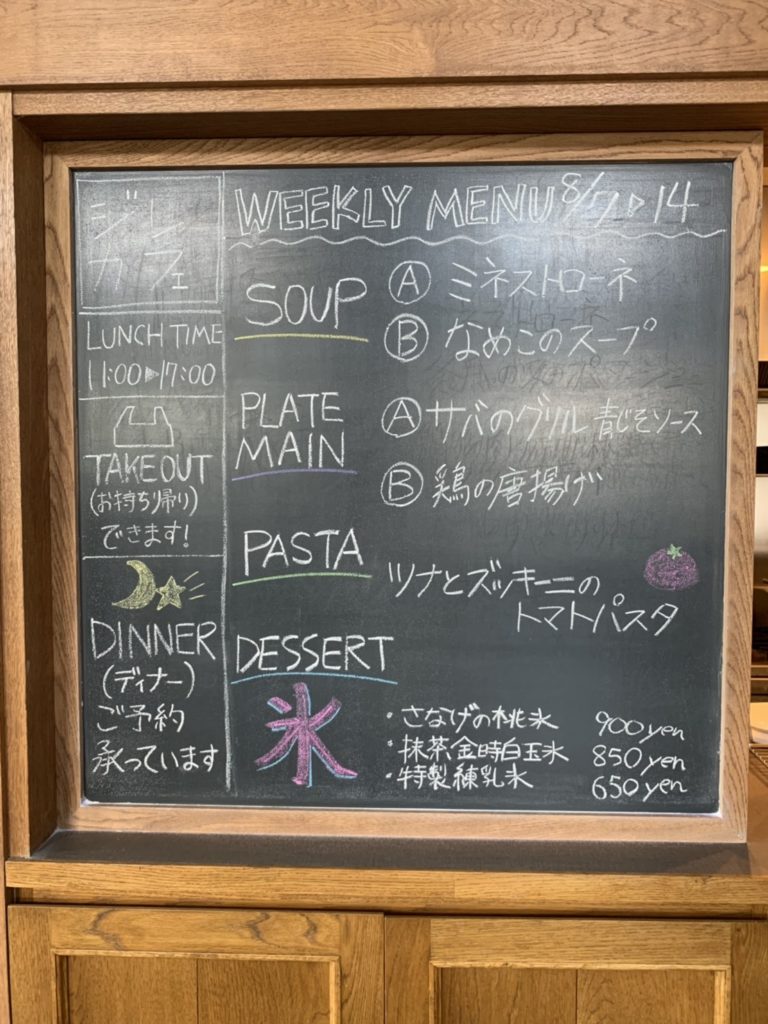 ジレ
カフェ
LUNCH TIME
11:00▷17:00
TAKE OUT
(お持ち帰り)
できます!
DINNER
(ディナー)
ご予約
承っています
WEEKLY MENU 8/7▷14
SOUP
Ⓐ ミネストローネ
Ⓑ なめこのスープ
PLATE
MAIN
Ⓐ サバのグリル 青じそソース
Ⓑ 鶏の唐揚げ
PASTA
ツナとズッキーニの
トマトパスタ
DESSERT
氷
・さなげの桃氷 900yen
・抹茶金時白玉氷 850yen
・特製練乳氷 650yen